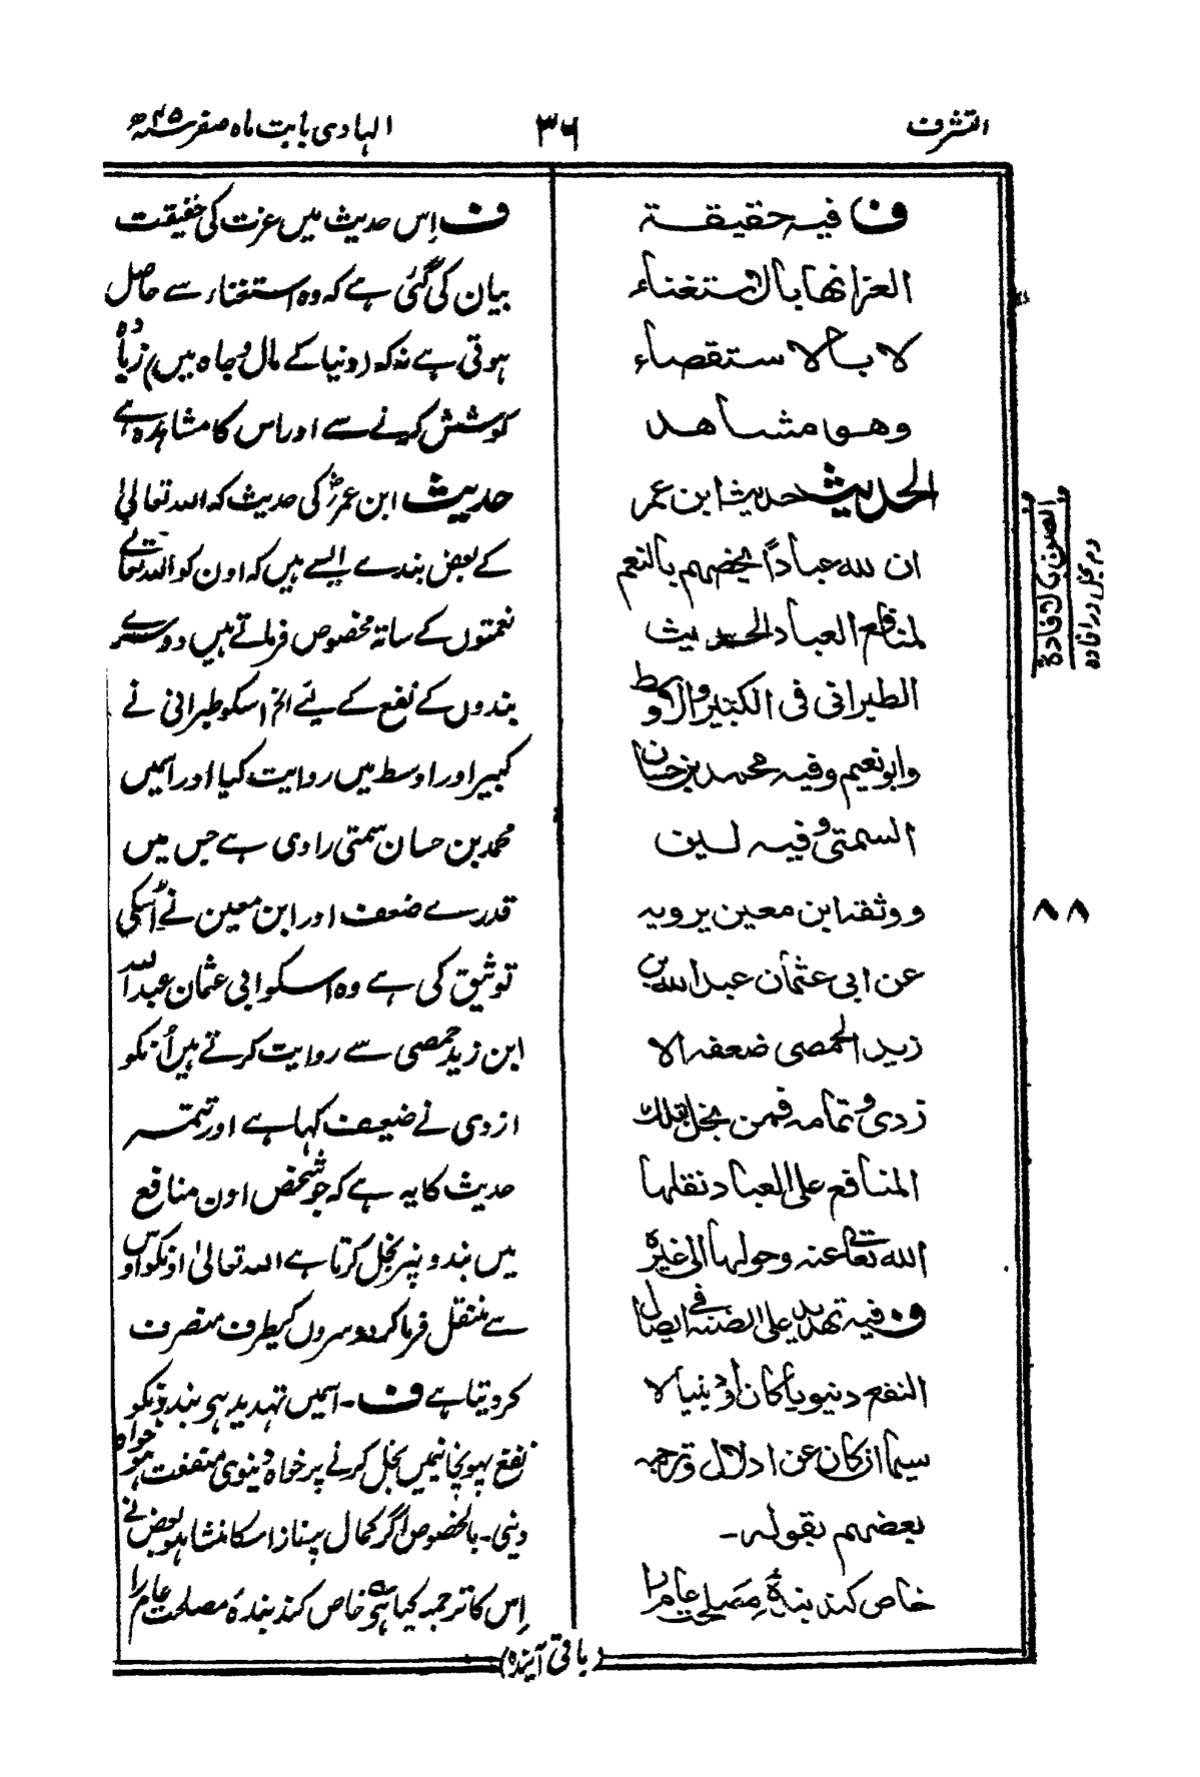 التشرف
۳۶
الہادی بابت ماہ صفر ۴۵ھ
ف فیہ حقیقۃ
العز انھا بالاستغناء
لا بالاستقصاء
وھو مشاھد
الحدیث حدیث ابن عمر
ان للہ عباداً یخصھم بالنعم
لمنافع العباد الحدیث
الطبرانی فی الکبیر والاوسط
وابو نعیم وفیہ محمد بن حسان
السمتی وفیہ لین
ووثقہ ابن معین یرویہ
عن ابی عثمان عبد اللہ بن
زید الحمصی ضعفہ الا
زدی وتمامہ فمن بخل بتلک
المنافع علی العباد نقلھا
اللہ تعالی عنہ وحولھا الی غیرہ
ف فیہ تھدید علی الضنۃ فی ایصال
النفع دنیویا کان او دینیا لا
سیما ان کان عن ادلال وترجمہ
بعضھم بقولہ۔
خاص کند بندۂ مصلحت عام را
ف اِس حدیث میں عزت کی حقیقت
بیان کی گئی ہے کہ وہ استغناء سے حاصل
ہوتی ہے نہ کہ (دنیا کے مال و جاہ میں) زیادہ
کوشش کرنے سے اور اس کا مشاہدہ ہے
حدیث ابن عمرؓ کی حدیث کہ اللہ تعالیٰ
کے بعض بندے ایسے ہیں کہ اون کو اللہ تعالےٰ
نعمتوں کے ساتہ مخصوص فرماتے ہیں دوسرے
بندوں کے نفع کے لیے الخ اسکو طبرانی نے
کبیر اور اوسط میں روایت کیا اور اسمیں
محمد بن حسان سمتی راوی ہے جس میں
قدرے ضعف اور ابن معین نے اُسکی
توثیق کی ہے وہ اسکو ابی عثمان عبد اللہ
ابن زید حمصی سے روایت کرتے ہیں اُنکو
ازدی نے ضعیف کہا ہے اور تتمہ
حدیث کا یہ ہے کہ جو شخص اون منافع
میں بندونپر بخل کرتا ہے اللہ تعالیٰ اونکو اوس
سے منتقل فرما کر دوسروں کیطرف منصرف
کر دیتا ہے ف۔ اسمیں تہدید ہی بندونکو
نفع پہونچانیمیں بخل کرنے پر خواہ دنیوی منفعت ہو خواہ
دینی۔ بالخصوص اگر کمال پر ناز اسکا منشا ہو بعض نے
اِس کا ترجمہ کیا ہی خاص کند بندۂ مصلحت عام را
والضن بالافادۃ
دم بخل در افادہ
۸۸
(باقی آیندہ)